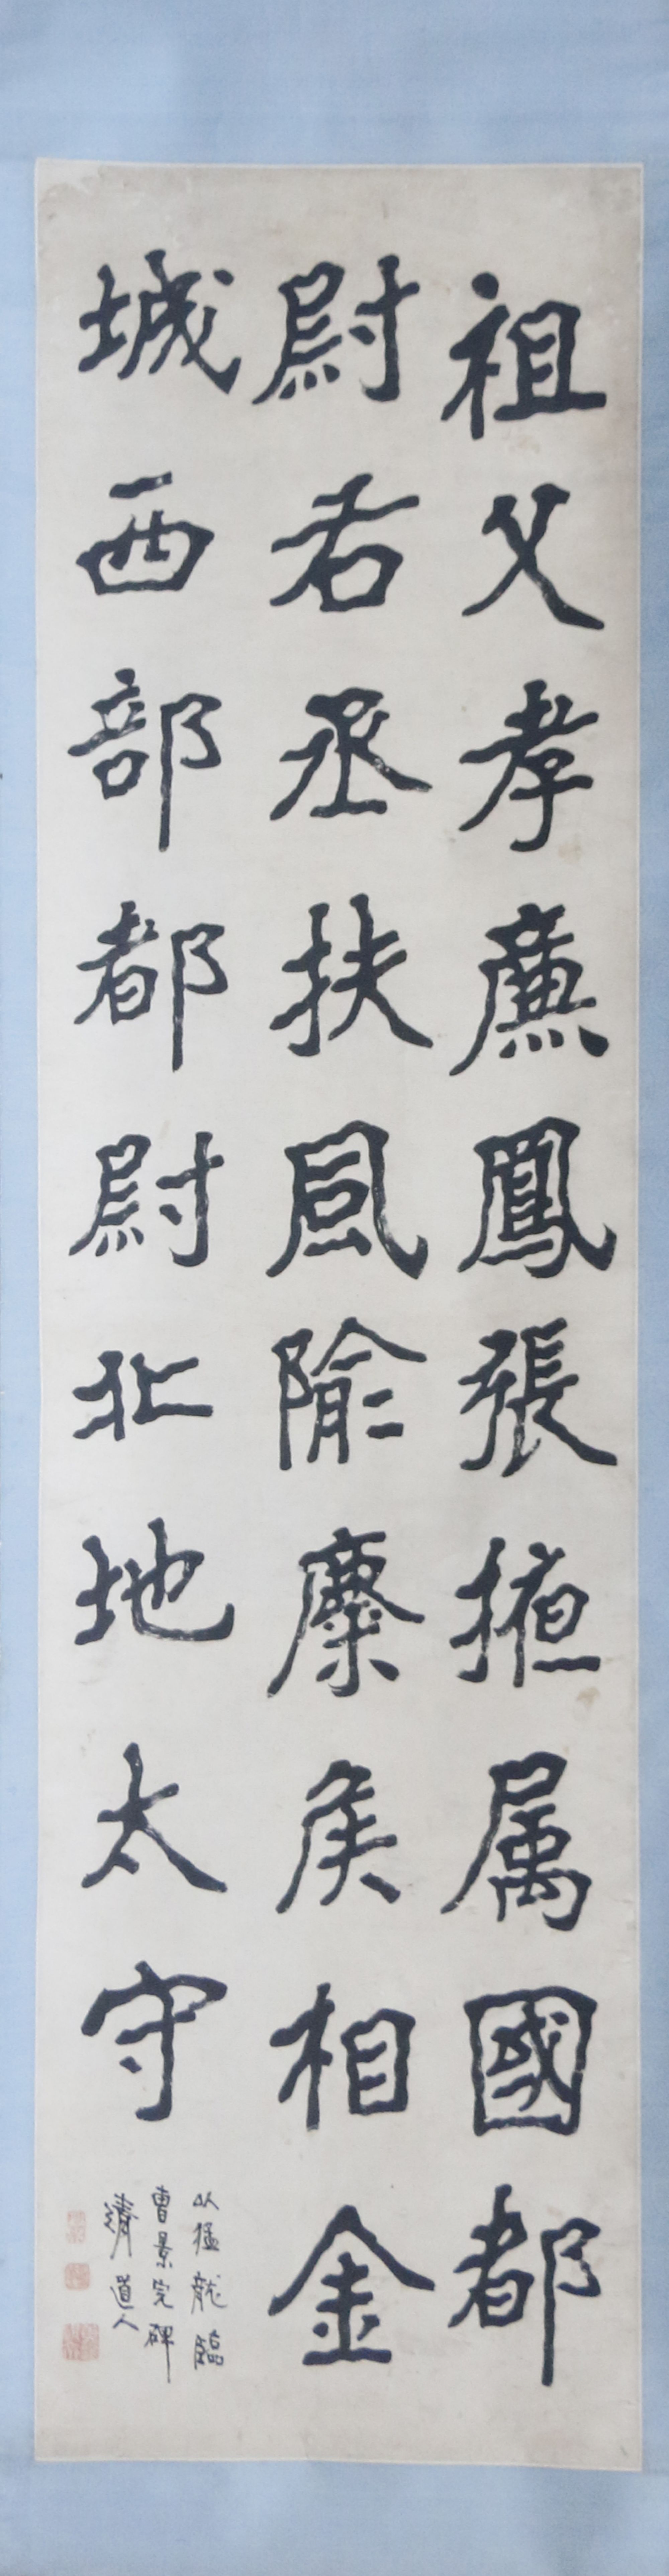 祖父孝廉鳳張掖属國都
尉右丞扶風隃糜侯相金
城西部都尉北地太守
以猛龍臨
曹景完碑
清道人